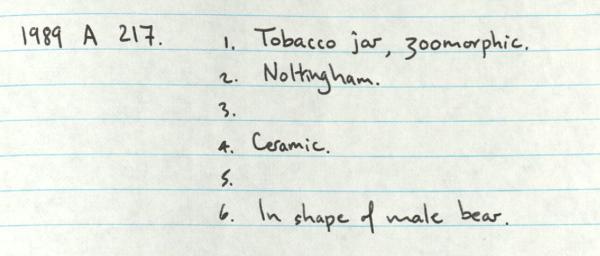 1989 A 217. 1. Tobacco jar, zoomorphic.
2. Nottingham.
3.
4. Ceramic.
5.
6. In shape of male bear.